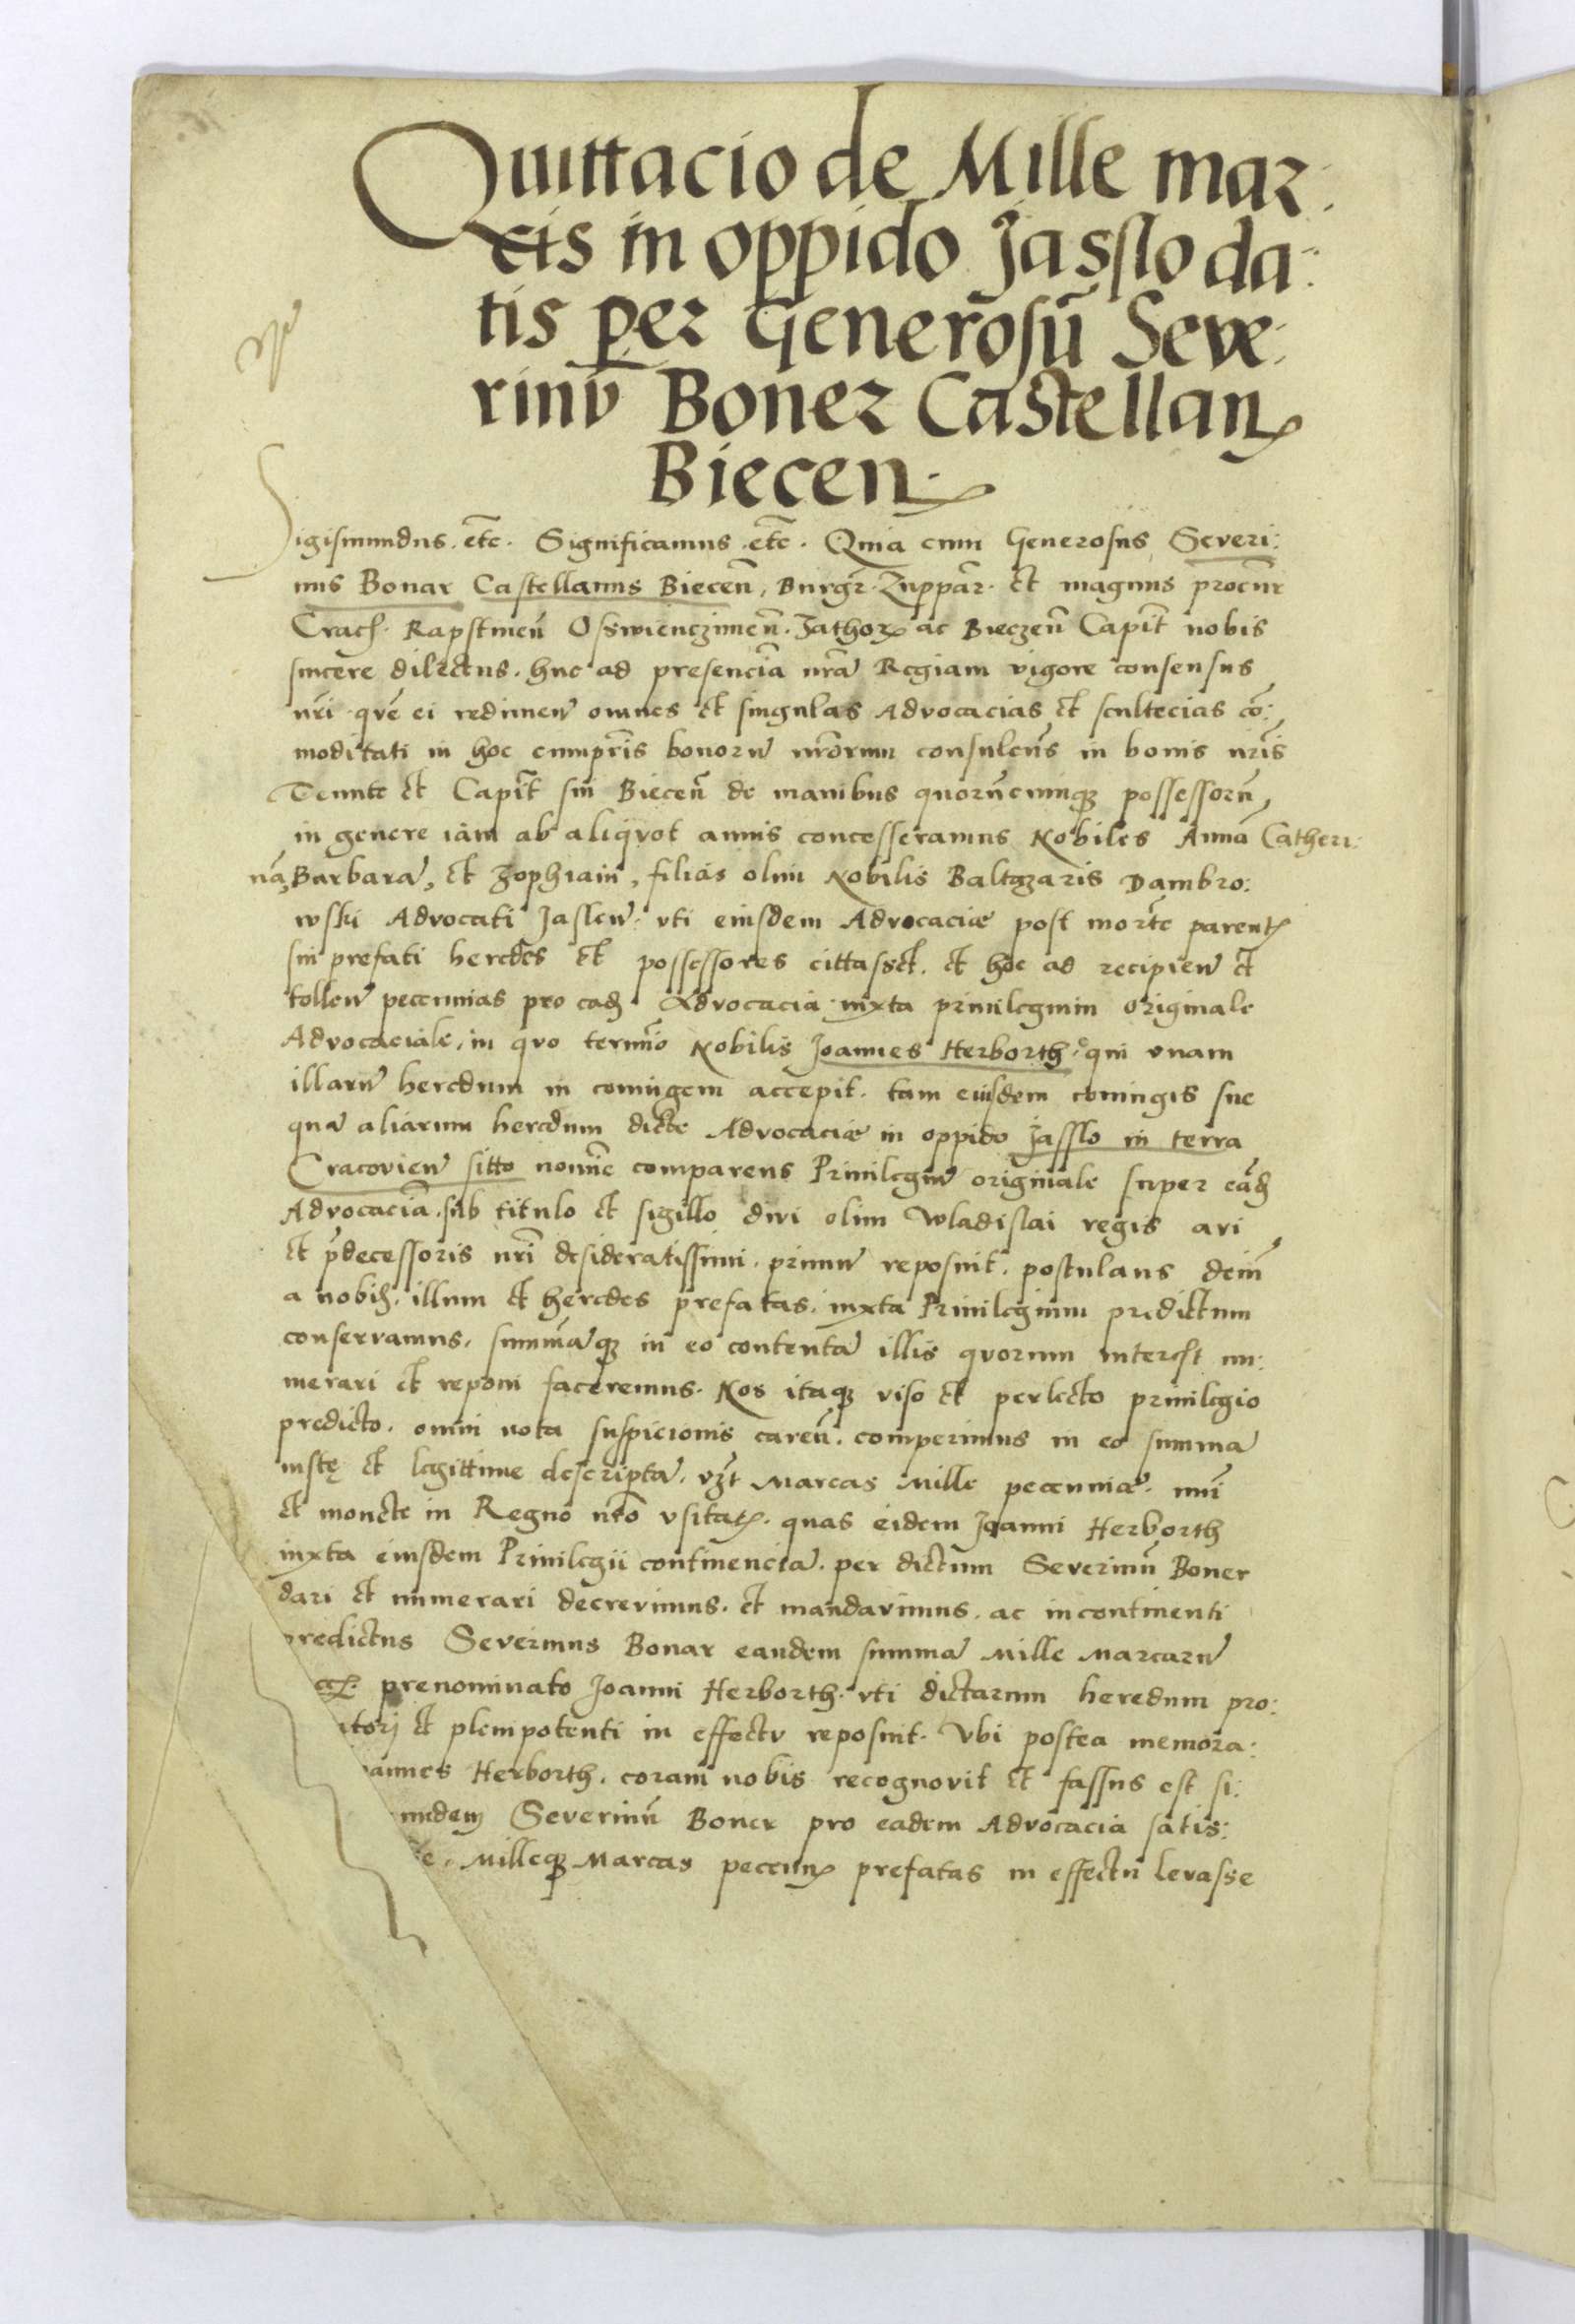 Quittacio de Mille mar:
cis in oppido Jasslo da:
tis per Generosū Seve:
rinū Boner Castellan
Biecen.
Sigismundus. etc̄. Significamus. etc̄. Quia cum Generosus Severi:
nus Bonar Castellanus Biecen̄, Burgr̄. Zuppar̄. et magnus procur̄
Crac. Rapstinen̄ Osswienczimen̄. Zathor ac Bieczen̄ Capit̄ nobis
sincere dilectus. huc ad presenciā nrā Regiam vigore consensus
nrī quē ei redimen̄ omnes et singulas Advocacias et scultecias cō:
moditati in hoc eumprīs bonorū nrōrum consulens in bonis nrīs
Tenute et Capit̄ sui Biecen̄ de manibus quorūcumq possessorū,
in genere iam ab aliquot annis concesseramus Nobiles Annā Catheri:
nā, Barbarā, et Zophiam, filias olim Nobilis Baltazaris Dambro:
wski Advocati Jaslen̄. uti eiusdem Advocaciæ post mortē parent
sui prefati heredes et possessores cittasset. et hoc ad recipien̄ et
tollen̄ pecunias pro ead. Advocacia iuxta privilegium originale
Advocaciale, in quo termīo Nobilis Joannes Herborth, qui unam
illarū heredum in coniugem accepit. tam eiusdem coniugis sue
quā aliarum heredum dicte Advocaciæ in oppido Jasslo in terra
Cracovien̄ sitto nomīe comparens Privilegiū originale super eād
Advocaciā. sub titulo et sigillo divi olim Wladislai regis avi
et p̄decessoris nrī desideratissimi. primū reposuit. postulans dein̄
a nobis. illum et heredes prefatas. iuxta Privilegium predictum
conservamus, summāq in eo contentā illis quorum interest nu:
merari et reponi faceremus. Nos itaq viso et perlecto privilegio
predicto. omni nota suspicionis caren̄. comperimus in eo summā
iustę et legittime descriptā. vzt Marcas Mille pecuniæ. num̄
et monete in Regno nrō usitat. quas eidem Joanni Herborth
iuxta eiusdem Privilegii continenciā. per dictum Severinū Boner
dari et numerari decrevimus. et mandavimus. ac incontinenti
predictus Severinus Bonar eandem summā Mille Marcarū
prenominato Joanni Herborth. uti dictarum heredum pro:
atori et plenipotenti in effectu reposuit. Ubi postea memora:
annes Herborth. coram nobis recognovit et fassus est si:
undem Severinū Boner pro eadem Advocacia satis:
e. Milleq Marcas pecun prefatas in effectu levasse